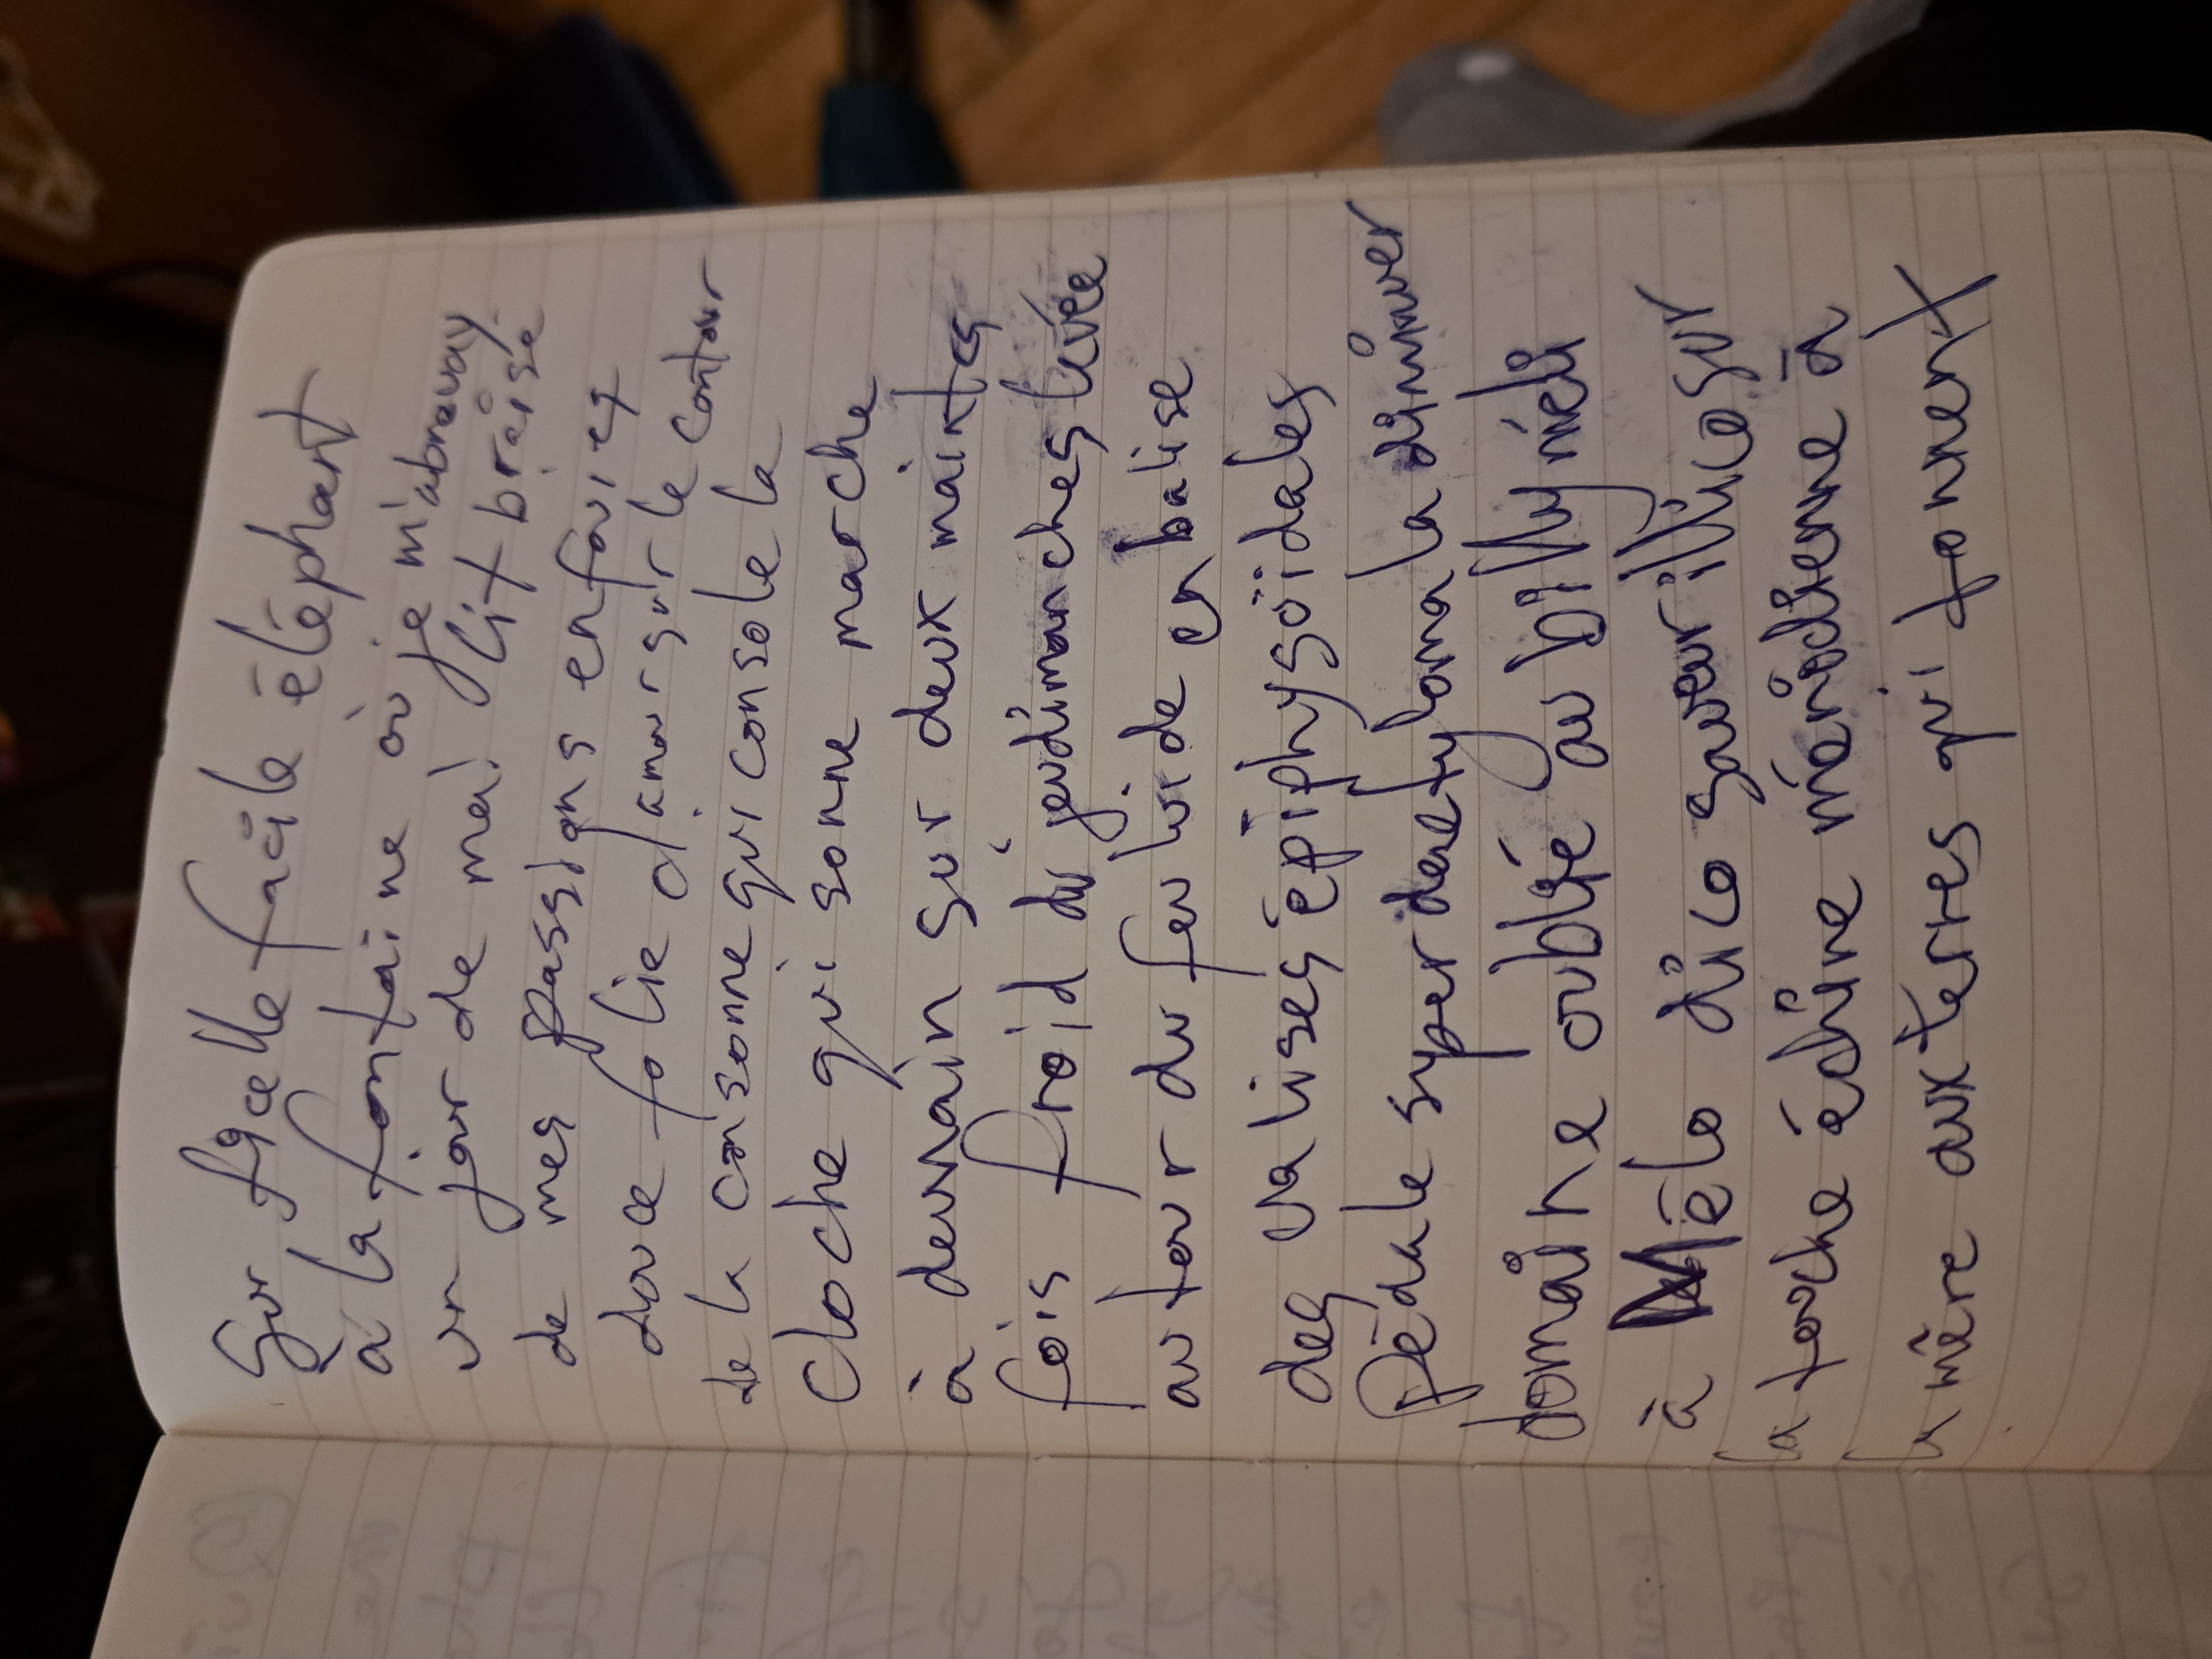 Sur ficelle facile éléphant
à la fontaine où je m'abreuvay
un jour de mai lit braisé
de mes passions enfouies
douce folie d'amour sur le contour
de la consonne qui console la
cloche qui sonne marche
à demain sur deux maintes
fois froid du jeudimanches livée
autour du feu luide en balise
des valises épiphysoïdales
Pédale super la
domaine oublié au billy
à Mélo dico savour illico sur
la toche édine méridienne à
la mère aux terres qui tonnent